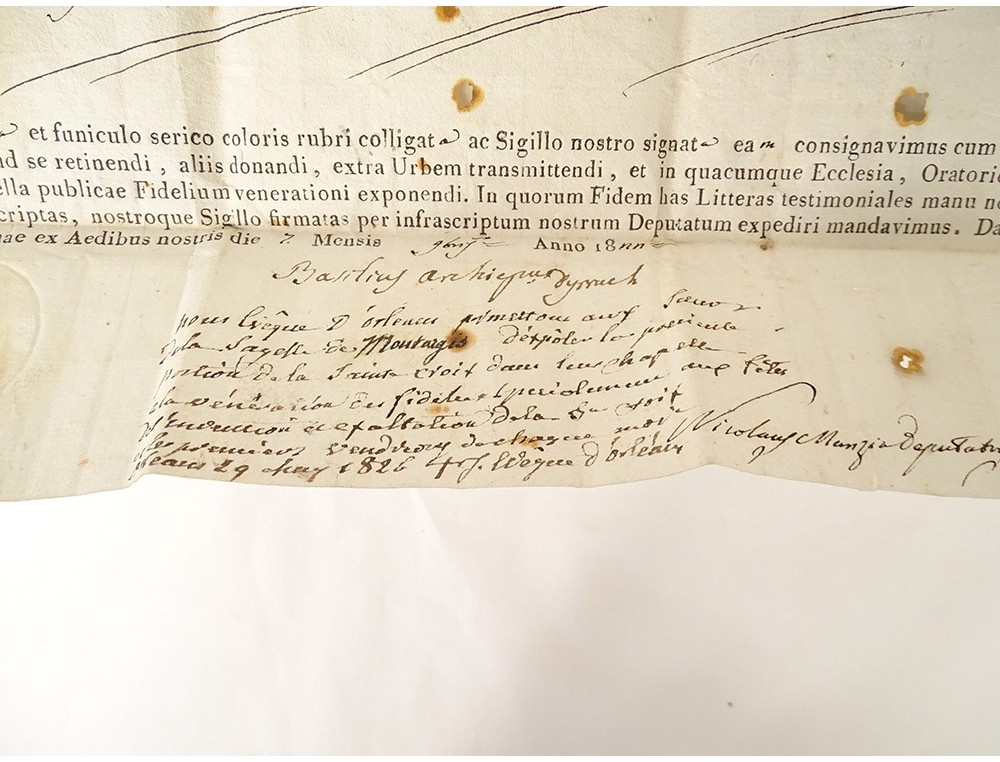 et funiculo serico coloris rubri colligata ac Sigillo nostro signata eam consignavimus cum
ad se retinendi, aliis donandi, extra Urbem transmittendi, et in quacumque Ecclesia, Oratorio
ella publicae Fidelium venerationi exponendi. In quorum Fidem has Litteras testimoniales manu no
criptas, nostroque Sigillo firmatas per infrascriptum nostrum Deputatum expediri mandavimus. Da
mae ex Aedibus nostris die 7 Mensis Anno 18
Basilius archiepus Dyrrach
nous Evêque d'orleans permettons aux Sœurs
de la Sagesse de Montargis d'expôser la présente
portion de la Sainte croix dans leur chapelle
a la vénération des fidéles spécialement aux fêtes
de l'invention et exaltation de la Ste croix
et les premiers vendredy de chaque mois
orléans 29 may 1826 Evêque d'orléans
Nicolaus Munzia Deputatu